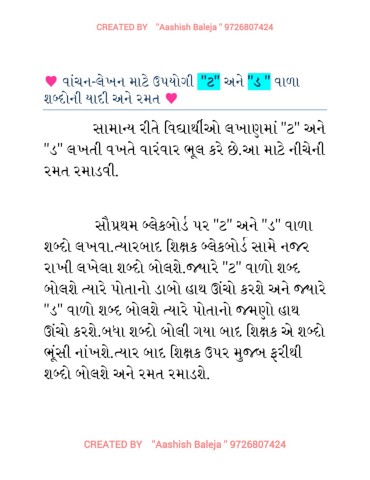 CREATED BY "Aashish Baleja " 9726807424
♥ વાંચન-લેખન માટે ઉપયોગી "ટ" અને "ડ " વાળા
શબ્દોની યાદી અને રમત ♥
સામાન્ય રીતે વિદ્યાર્થીઓ લખાણમાં "ટ" અને
"ડ" લખતી વખતે વારંવાર ભૂલ કરે છે.આ માટે નીચેની
રમત રમાડવી.
સૌપ્રથમ બ્લેકબોર્ડ પર "ટ" અને "ડ" વાળા
શબ્દો લખવા.ત્યારબાદ શિક્ષક બ્લેકબોર્ડ સામે નજર
રાખી લખેલા શબ્દો બોલશે.જ્યારે "ટ" વાળો શબ્દ
બોલશે ત્યારે પોતાનો ડાબો હાથ ઊંચો કરશે અને જ્યારે
"ડ" વાળો શબ્દ બોલશે ત્યારે પોતાનો જમણો હાથ
ઊંચો કરશે.બધા શબ્દો બોલી ગયા બાદ શિક્ષક એ શબ્દો
ભૂંસી નાંખશે.ત્યાર બાદ શિક્ષક ઉપર મુજબ ફરીથી
શબ્દો બોલશે અને રમત રમાડશે.
CREATED BY "Aashish Baleja " 9726807424